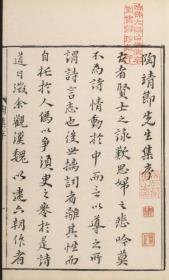 陶靖節先生集序
古者賢士之詠歎思婦之悲吟莫
不為詩情動於中而言以導之所
謂詩言志也後世摛詞者離其性而
自託於人偽以爭須臾之譽於是詩
道日微余觀漢魏以逮六朝作者